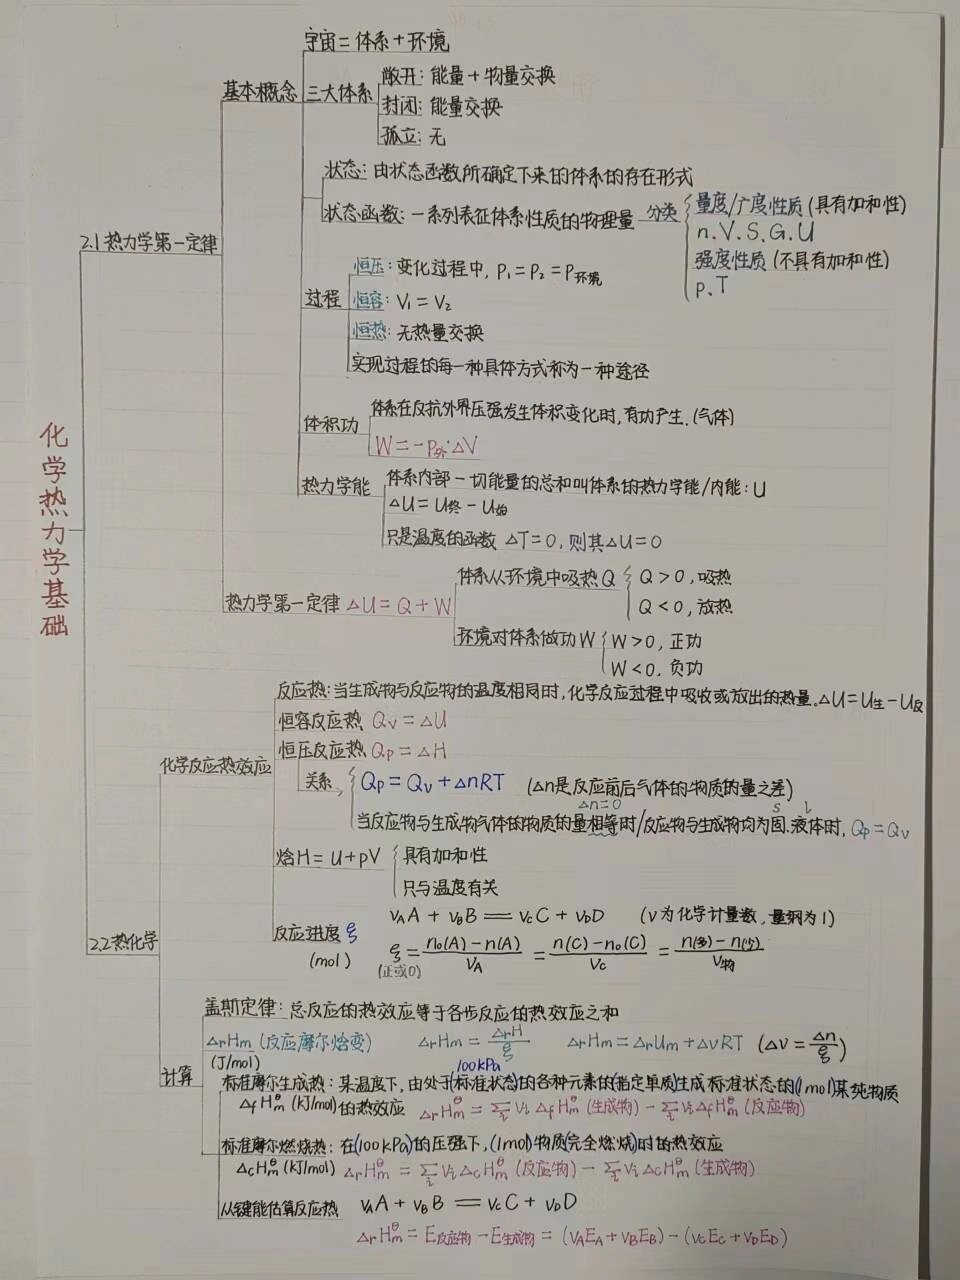 化学热力学基础
2.1 热力学第一定律
基本概念
宇宙=体系+环境
三大体系
敞开:能量+物量交换
封闭:能量交换
孤立:无
状态:由状态函数所确定下来的体系的存在形式
状态函数:一系列表征体系性质的物理量 分类
量度/广度性质(具有加和性)
n.V.S.G.U
强度性质(不具有加和性)
p、T
过程
恒压:变化过程中,P₁=P₂=P环境
恒容:V₁=V₂
恒热:无热量交换
实现过程的每一种具体方式称为一种途径
体积功
体系在反抗外界压强发生体积变化时,有功产生.(气体)
W=-P外·△V
热力学能
体系内部一切能量的总和叫体系的热力学能/内能:U
△U=U终-U始
只是温度的函数 △T=0,则其△U=0
热力学第一定律 △U=Q+W
体系从环境中吸热Q
Q>0,吸热
Q<0,放热
环境对体系做功W
W>0,正功
W<0,负功
2.2 热化学
化学反应热效应
反应热:当生成物与反应物的温度相同时,化学反应过程中吸收或放出的热量。△U=U生-U反
恒容反应热 Qv=△U
恒压反应热 Qp=△H
关系
Qp=Qv+△nRT (△n是反应前后气体的物质的量之差)
△n=0 s l
当反应物与生成物气体的物质的量相等时/反应物与生成物均为固.液体时,Qp=Qv
焓H=U+pV
具有加和性
只与温度有关
反应进度 ξ
(mol)
νAA+νBB══νcC+νDD (ν为化学计量数,量纲为1)
ξ=(n₀(A)-n(A))/νA=(n(C)-n₀(C))/νc=(n(多)-n(少))/ν物
(正或0)
计算
盖斯定律:总反应的热效应等于各步反应的热效应之和
△rHm(反应摩尔焓变) △rHm=△rH/ξ △rHm=△rUm+△νRT (△ν=△n/ξ)
(J/mol)
100kPa
标准摩尔生成热:某温度下,由处于(标准状态)的各种元素的(指定单质)生成标准状态的(1mol)某纯物质
△fHm^θ(KJ/mol)的热效应 △rHm^θ=∑νi△fHm^θ(生成物)-∑νi△fHm^θ(反应物)
标准摩尔燃烧热:在(100kPa)的压强下,(1mol)物质(完全燃烧)时的热效应
△cHm^θ(KJ/mol) △rHm^θ=∑νi△cHm^θ(反应物)-∑νi△cHm^θ(生成物)
从键能估算反应热 νAA+νBB══νcC+νDD
△rHm^θ=E反应物-E生成物=(νAEA+νBEB)-(νcEc+νDED)